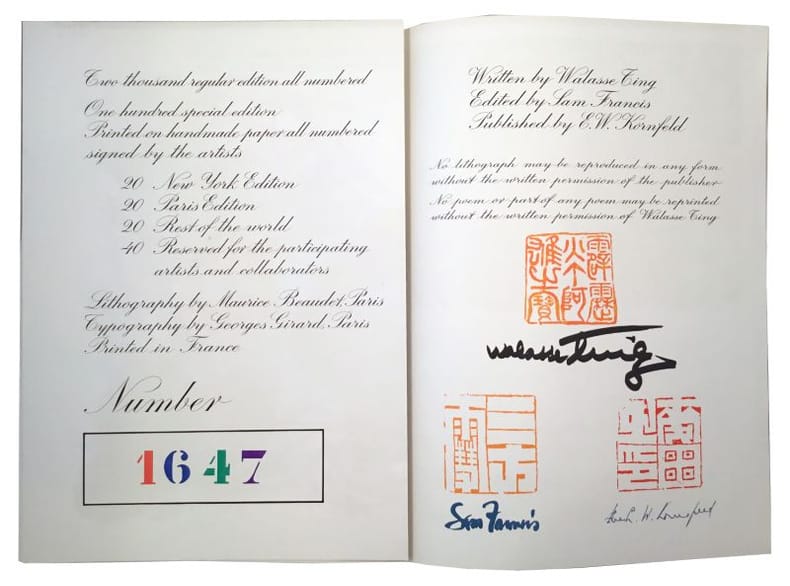 Two thousand regular edition all numbered
One hundred special edition
Printed on handmade paper all numbered
signed by the artists
20 New York Edition
20 Paris Edition
20 Rest of the world
40 Reserved for the participating
artists and collaborators
Lithography by Maurice Beaudet, Paris
Typography by Georges Girard, Paris
Printed in France
Number
1647
Written by Walasse Ting
Edited by Sam Francis
Published by E.W. Kornfeld
No lithograph may be reproduced in any form
without the written permission of the publisher
No poem or part of any poem may be reprinted
without the written permission of Walasse Ting
Walasse Ting
Sam Francis